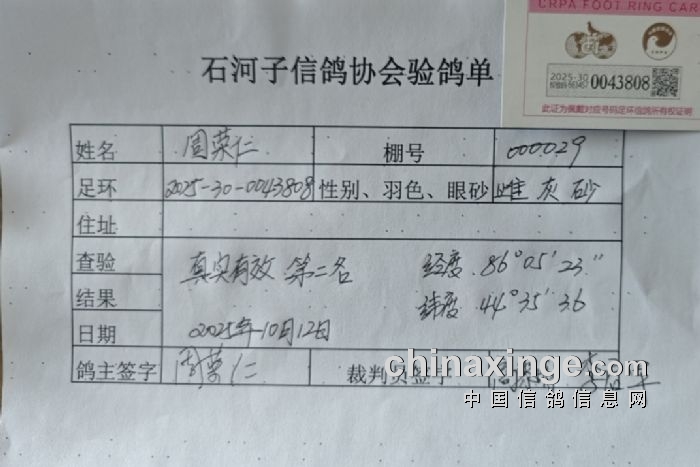 CRPA FOOT RING CAR
2025-30
0043808
此证为佩戴对应号码足环信鸽所有权证明
石河子信鸽协会验鸽单
姓名 周荣仁 棚号 000029
足环 2025-30-0043808 性别、羽色、眼砂 雌灰砂
住址
查验 真实有效 第二名 经度 86°05'23"
结果 纬度 44°35'36
日期 2025年10月12日
鸽主签字 周荣仁 裁判员签字
chinaxinge.com
中国信鸽信息网